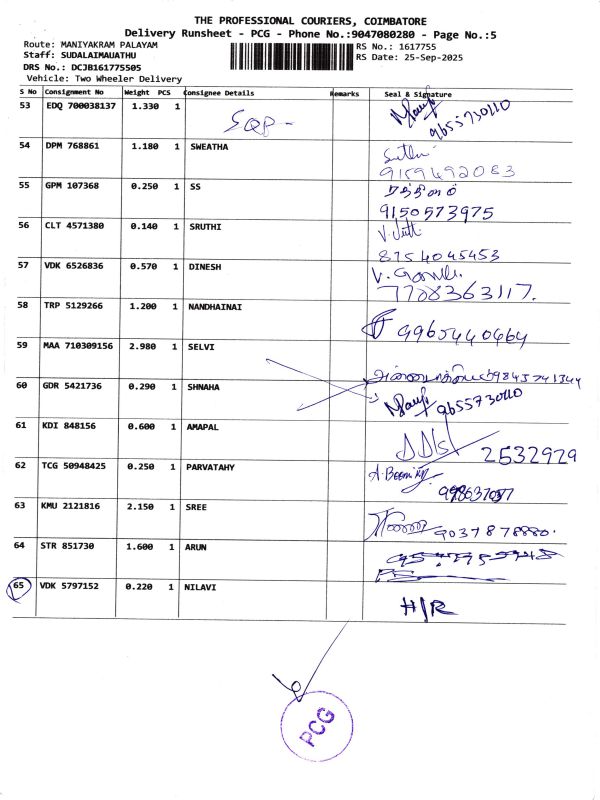 THE PROFESSIONAL COURIERS, COIMBATORE
Delivery Runsheet - PCG - Phone No.:9047080280 - Page No.:5
Route: MANIYAKRAM PALAYAM
Staff: SUDALAIMAUATHU
DRS No.: DCJB161775505
Vehicle: Two Wheeler Delivery
RS No.: 1617755
RS Date: 25-Sep-2025
S No Consignment No Weight PCS Consignee Details Remarks Seal & Signature
53 EDQ 700038137 1.330 1 9655730110
54 DPM 768861 1.180 1 SWEATHA 9159492083
55 GPM 107368 0.250 1 SS 9150573975
56 CLT 4571380 0.140 1 SRUTHI 8754045453
57 VDK 6526836 0.570 1 DINESH 7708363117.
58 TRP 5129266 1.200 1 NANDHAINAI 9965440464
59 MAA 710309156 2.980 1 SELVI 9845741344
60 GDR 5421736 0.290 1 SHNAHA 9655730110
61 KDI 848156 0.600 1 AMAPAL 2532929
62 TCG 50948425 0.250 1 PARVATAHY
63 KMU 2121816 2.150 1 SREE
64 STR 851730 1.600 1 ARUN
65 VDK 5797152 0.220 1 NILAVI H/R
PCG